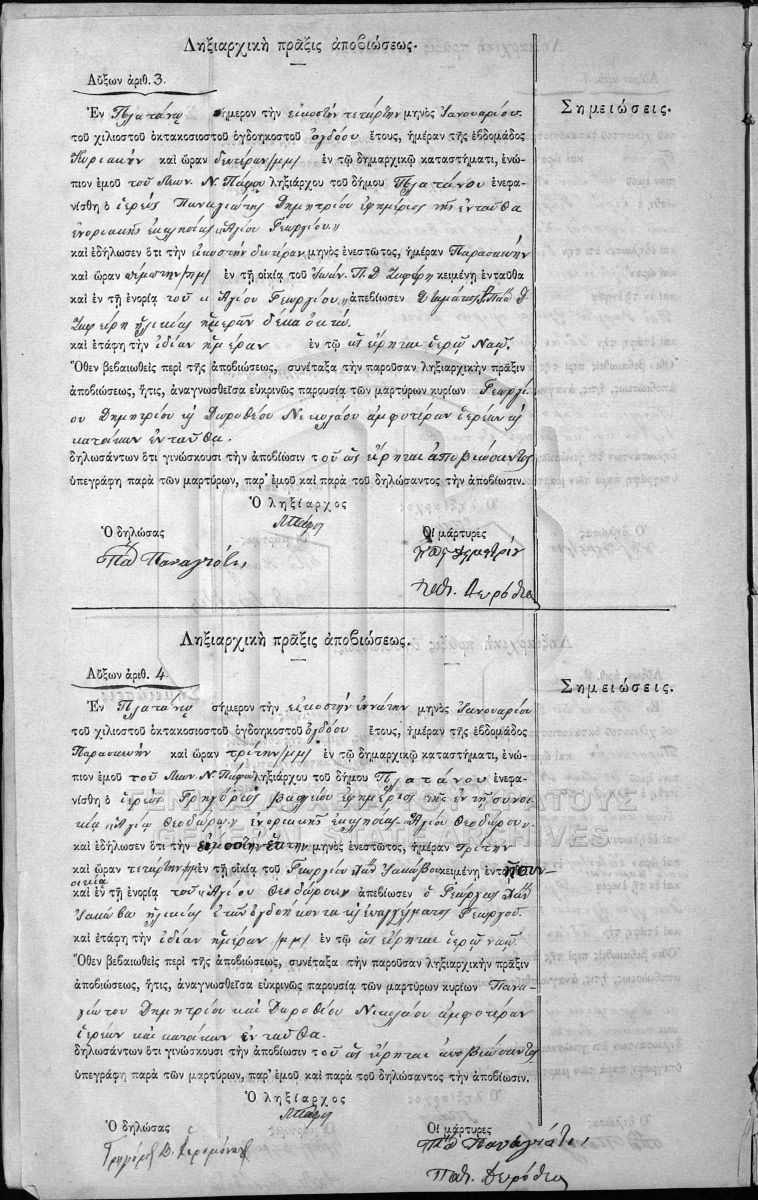 Ληξιαρχικὴ πρᾶξις ἀποβιώσεως.
Αὔξων ἀριθ. 3.
Σημειώσεις.
Ἐν Πλατάνῳ σήμερον τὴν εἰκοστὴν τετάρτην μηνὸς Ἰανουαρίου
τοῦ χιλιοστοῦ ὀκτακοσιοστοῦ ὀγδοηκοστοῦ ὀγδόου ἔτους, ἡμέραν τῆς ἑβδομάδος
Κυριακὴν καὶ ὥραν δευτέραν μμ ἐν τῷ δημαρχικῷ καταστήματι, ἐνώ-
πιον ἐμοῦ τοῦ Λεων. Ν. Πάφου ληξιάρχου τοῦ δήμου Πλατάνου ἐνεφα-
νίσθη ὁ ἱερεὺς Παναγιώτης Δημητρίου ἐφημέριος τῆς ἐνταῦθα
ἐνοριακῆς ἐκκλησίας "Ἁγίου Γεωργίου"
καὶ ἐδήλωσεν ὅτι τὴν εἰκοστὴν δευτέραν μηνὸς ἐνεστῶτος, ἡμέραν Παρασκευὴν
καὶ ὥραν πέμπτην πμ ἐν τῇ οἰκίᾳ τοῦ Ἰωάν. Π. Δ. κειμένῃ ἐνταῦθα
καὶ ἐν τῇ ἐνορίᾳ τοῦ "Ἁγίου Γεωργίου" ἀπεβίωσεν
ἡλικίας ἡμερῶν δέκα ὀκτώ.
καὶ ἐτάφη τὴν ἰδίαν ἡμέραν ἐν τῷ ὡς εἴρηται ἱερῷ Ναῷ.
Ὅθεν βεβαιωθεὶς περὶ τῆς ἀποβιώσεως, συνέταξα τὴν παροῦσαν ληξιαρχικὴν πρᾶξιν
ἀποβιώσεως, ἥτις, ἀναγνωσθεῖσα εὐκρινῶς παρουσίᾳ τῶν μαρτύρων κυρίων Γεωργί-
ου Δημητρίου κ Δωροθέου Νικολάου ἀμφοτέρων ἱερέων κ
κατοίκων ἐνταῦθα.
δηλωσάντων ὅτι γινώσκουσι τὴν ἀποβίωσιν τοῦ ὡς εἴρηται ἀποβιώσαντος
ὑπεγράφη παρὰ τῶν μαρτύρων, παρ' ἐμοῦ καὶ παρὰ τοῦ δηλώσαντος τὴν ἀποβίωσιν.
Ὁ ληξίαρχος
Λ Πάφος
Ὁ δηλώσας
Οἱ μάρτυρες
Πα Παναγιότις
Ληξιαρχικὴ πρᾶξις ἀποβιώσεως.
Αὔξων ἀριθ. 4
Σημειώσεις.
Ἐν Πλατάνῳ σήμερον τὴν εἰκοστὴν ἐννάτην μηνὸς Ἰανουαρίου
τοῦ χιλιοστοῦ ὀκτακοσιοστοῦ ὀγδοηκοστοῦ ὀγδόου ἔτους, ἡμέραν τῆς ἑβδομάδος
Παρασκευὴν καὶ ὥραν τρίτην μμ ἐν τῷ δημαρχικῷ καταστήματι, ἐνώ-
πιον ἐμοῦ τοῦ Λεων. Ν. Πάφου ληξιάρχου τοῦ δήμου Πλατάνου ἐνεφα-
νίσθη ὁ ἱερεὺς Γρηγόριος Βασιλείου ἐφημέριος τῆς ἐν τῇ συνοι-
κίᾳ "Ἁγίων Θεοδώρων" ἐνοριακῆς ἐκκλησίας "Ἁγίου Θεοδώρου"
καὶ ἐδήλωσεν ὅτι τὴν μηνὸς ἐνεστῶτος, ἡμέραν τρίτην
καὶ ὥραν τετάρτην ἐν τῇ οἰκίᾳ τοῦ Γεωργίου κειμένῃ ἐν τῇ συν-
οικίᾳ
καὶ ἐν τῇ ἐνορίᾳ τοῦ "Ἁγίου Θεοδώρου" ἀπεβίωσεν ὁ Γεώργιος
ἡλικίας ἐτῶν ὀγδοήκοντα κ ἐπαγγέλματος Γεωργοῦ.
καὶ ἐτάφη τὴν ἰδίαν ἡμέραν μμ ἐν τῷ ὡς εἴρηται ἱερῷ ναῷ.
Ὅθεν βεβαιωθεὶς περὶ τῆς ἀποβιώσεως, συνέταξα τὴν παροῦσαν ληξιαρχικὴν πρᾶξιν
ἀποβιώσεως, ἥτις, ἀναγνωσθεῖσα εὐκρινῶς παρουσίᾳ τῶν μαρτύρων κυρίων Πανα-
γιώτου Δημητρίου καὶ Δωροθέου Νικολάου ἀμφοτέρων
ἱερέων καὶ κατοίκων ἐνταῦθα.
δηλωσάντων ὅτι γινώσκουσι τὴν ἀποβίωσιν τοῦ ὡς εἴρηται ἀποβιώσαντος
ὑπεγράφη παρὰ τῶν μαρτύρων, παρ' ἐμοῦ καὶ παρὰ τοῦ δηλώσαντος τὴν ἀποβίωσιν.
Ὁ ληξίαρχος
Λ Πάφος
Ὁ δηλώσας
Οἱ μάρτυρες
Πα Παναγιότις
ΓΕΝΙΚΑ ΑΡΧΕΙΑ ΤΟΥ ΚΡΑΤΟΥΣ
GENERAL STATE ARCHIVES